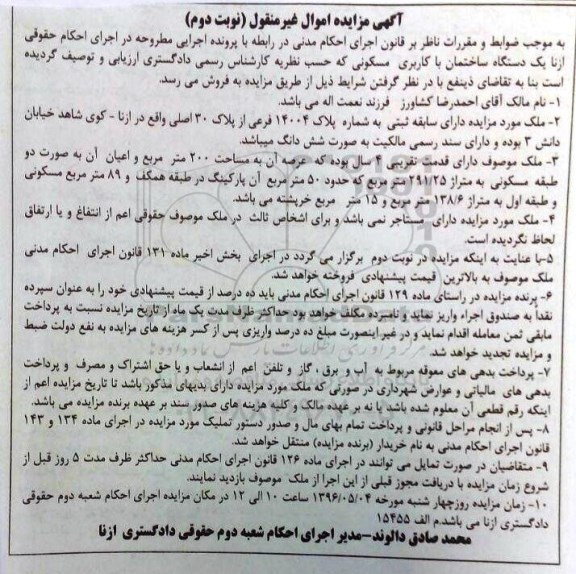 آگهی مزایده اموال غیرمنقول (نوبت دوم)
به موجب ضوابط و مقررات ناظر بر قانون اجرای احکام مدنی در رابطه با پرونده اجرایی مطروحه در اجرای احکام حقوقی
ازنا یک دستگاه ساختمان با کاربری مسکونی که حسب نظریه کارشناس رسمی دادگستری ارزیابی و توصیف گردیده
است بنا به تقاضای ذینفع با در نظر گرفتن شرایط ذیل از طریق مزایده به فروش می رسد.
۱- نام مالک آقای احمدرضا کشاورز فرزند نعمت اله می باشد.
۲- ملک مورد مزایده دارای سابقه ثبتی به شماره پلاک ۱۴۰۰۴ فرعی از پلاک ۳۰ اصلی واقع در ازنا - کوی شاهد خیابان
دانش ۳ بوده و دارای سند رسمی مالکیت به صورت شش دانگ میباشد.
۳- ملک موصوف دارای قدمت تقریبی ۴ سال بوده که عرصه آن به مساحت ۲۰۰ متر مربع و اعیان آن به صورت دو
طبقه مسکونی به متراژ ۲۹۲/۲۵ متر مربع که حدود ۵۰ متر مربع آن پارکینگ در طبقه همکف و ۸۹ متر مربع مسکونی
و طبقه اول به متراژ ۱۳۸/۶ متر مربع و ۱۵ متر مربع خرپشته می باشد.
۴- ملک مورد مزایده دارای مستاجر نمی باشد و برای اشخاص ثالث در ملک موصوف حقوقی اعم از انتفاع و یا ارتفاق
لحاظ نگردیده است.
۵-با عنایت به اینکه مزایده در نوبت دوم برگزار می گردد در اجرای بخش اخیر ماده ۱۳۱ قانون اجرای احکام مدنی
ملک موصوف به بالاترین قیمت پیشنهادی فروخته خواهد شد.
۶- برنده مزایده در راستای ماده ۱۲۹ قانون اجرای احکام مدنی باید ده درصد از قیمت پیشنهادی خود را به عنوان سپرده
نقداً به صندوق اجراء واریز نماید و نامبرده مکلف خواهد بود حداکثر ظرف مدت یک ماه از تاریخ مزایده نسبت به پرداخت
مابقی ثمن معامله اقدام نماید و در غیر اینصورت مبلغ ده درصد واریزی پس از کسر هزینه های مزایده به نفع دولت ضبط
و مزایده تجدید خواهد شد.
۷- پرداخت بدهی های معوقه مربوط به آب و برق ، گاز و تلفن اعم از انشعاب و یا حق اشتراک و مصرف و پرداخت
بدهی های مالیاتی و عوارض شهرداری در صورتی که ملک مورد مزایده دارای بدیهای مذکور باشد تا تاریخ مزایده اعم از
اینکه رقم قطعی آن معلوم شده باشد یا نه بر عهده مالک و کلیه هزینه های صدور سند بر عهده برنده مزایده می باشد.
۸- پس از انجام مراحل قانونی و پرداخت تمام بهای مال و صدور دستور تملیک مورد مزایده در اجرای ماده ۱۳۴ و ۱۴۳
قانون اجرای احکام مدنی به نام خریدار (برنده مزایده) منتقل خواهد شد.
۹- متقاضیان در صورت تمایل می توانند در اجرای ماده ۱۲۶ قانون اجرای احکام مدنی حداکثر ظرف مدت ۵ روز قبل از
شروع زمان مزایده با دریافت مجوز قبلی از این اجرا از ملک موصوف بازدید نمایند.
۱۰- زمان مزایده روزچهار شنبه مورخه ۱۳۹۶/۰۵/۰۴ ساعت ۱۰ الی ۱۲ در مکان مزایده اجرای احکام شعبه دوم حقوقی
دادگستری ازنا می باشد.م الف ۱۵۴۵۵
محمد صادق دالوند-مدیر اجرای احکام شعبه دوم حقوقی دادگستری ازنا